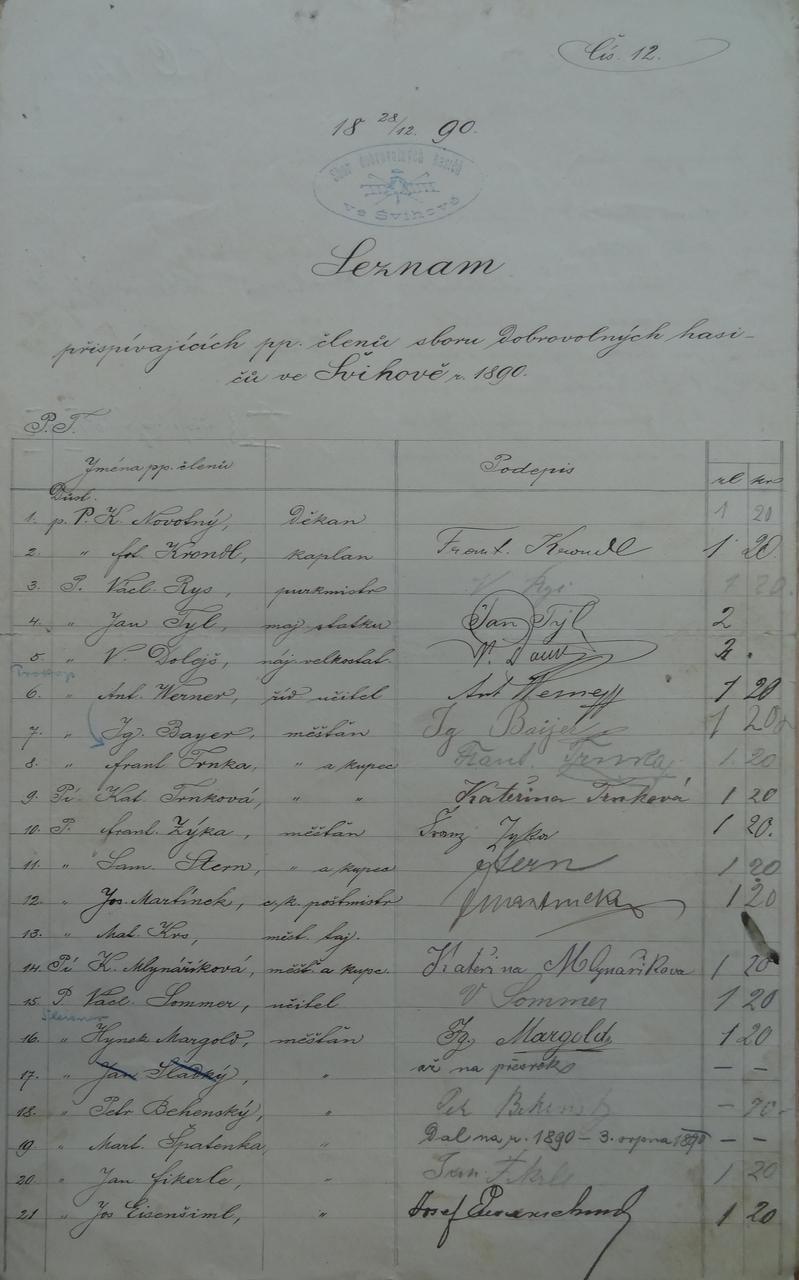 Čís. 12.
18 28/12. 90.
Sbor dobrovolných hasičů
ve Švihově
Seznam
přispívajících pp. členů sboru dobrovolných hasi-
čů ve Švihově r. 1890.
P. T.
Jména pp. členů Podepis zl kr
Důst.
1. p. P. K. Novotný, Děkan 1 20
2. " fot. Krondl, kaplan Frant. Krondl 1 20.
3. P. Václ. Rys, purkmistr V. Rys 1 20.
4. " Jan Tyl, maj. statku Jan Týl 2
5. " V. Dolejš, náj. velkostat. V. 2.
Prokop
6. " Ant. Werner, říd. učitel Ant Werner 1 20
7. " Ig. Bayer, měšťan Ig Baijer 1 20
8. " Frant Trnka, " a kupec Frant. Trnka 1 20
9. Pí Kat. Trnková, " " Kateřina Trnková 1 20
10. P. Frant. Zýka, měšťan Franz Zyka 1 20.
11. " Sam. Stern, " a kupec Stern 1 20
12. " Jos. Martínek, c. k. poštmistr JMartinek 1 20
13. " Mat. Krs, měst. taj.
14. Pí K. Mlynáříková, měšť. a kupc. Kateřina Mlynaříkova 1 20
15. P. Václ. Sommer, učitel V Sommer 1 20
16. " Hynek Margold, měšťan Ig. Margold 1 20
17. " Jan Sladký, " až na – –
18. " Petr Behenský, " Petr Behenský – 70
19. " Mart. Špatenka, " Dal na r. 1890 – 3. srpna 1890 – –
20. " Jan Fikerle, " Jan Fikrle 1 20
21. " Jos Eisenšiml, " Josef 1 20